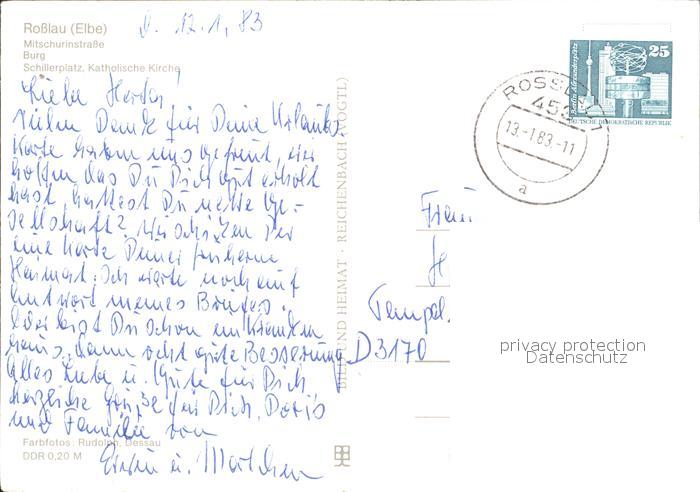 Roßlau (Elbe)
Mitschurinstraße
Burg
Schillerplatz, Katholische Kirche
d. 12.1.83
Liebe Herta!
Vielen Dank für Deine Urlaubs-
karte haben uns gefreut, wir
hoffen das Du Dich gut erholt
hast, hattest Du nette Ge-
sellschaft? Wir schicken Dir
eine Karte Deiner früheren
Heimat. Ich warte noch auf
Antwort meines Briefes.
Oder bist Du schon im Kranken
haus, dann recht gute Besserung
Alles Liebe u. Gute für Dich
herzliche Grüße für Dich, Doris
und Familie von
Erwin u.
Farbfotos: Rudolph, Dessau
DDR 0,20 M
BILD UND HEIMAT · REICHENBACH (VOGTL)
25
DEUTSCHE DEMOKRATISCHE REPUBLIK
ROSSLAU 1
453
13.-1.83.-11
a
Frau
He
Tempel
D 3170
privacy protection
Datenschutz